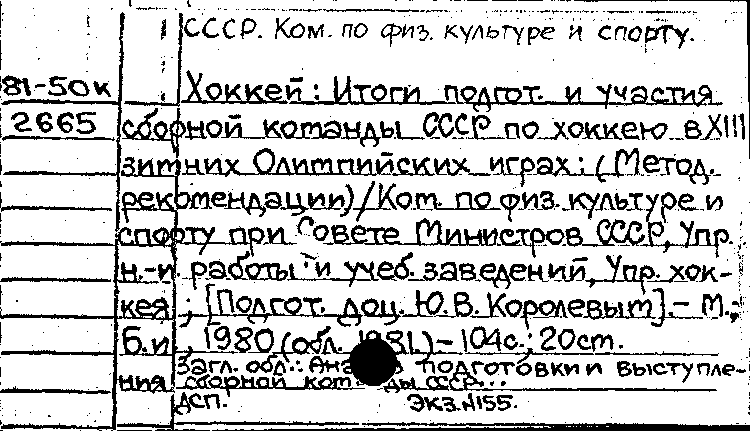 СССР. Ком. по физ. культуре и спорту.
81-50к Хоккей: Итоги подгот. и участия
2665 сборной команды СССР по хоккею в XIII
зимних Олимпийских играх: (Метод.
рекомендации)/Ком. по физ. культуре и
спорту при Совете Министров СССР, Упр.
н.-и. работы и учеб. заведений, Упр. хок-
кея; [Подгот. доц. Ю.В. Королевым].- М.,:
Б.и., 1980 (обл. 1981.)- 104с.; 20см.
Загл. обл.: подготовки и выступле-
ния сборной команды СССР...
ДСП. Экз.№155.